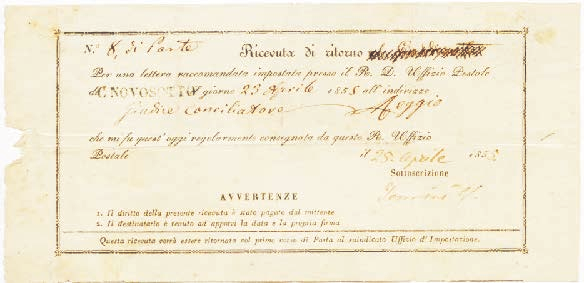 N.° 8, di Parte Ricevuta di ritorno
Per una lettera raccomandata impostata presso il Re. D. Uffizio Postale
di C. NOVOSOTTO giorno 23 Aprile 1855 all'indirizzo
Giudice Conciliatore Reggio
che mi fu quest'oggi regolarmente consegnata da questo R. Uffizio
Postale il 25 Aprile 1855
Sottoscrizione
AVVERTENZE
1. Il diritto della presente ricevuta è stato pagato dal mittente
2. Il destinatario è tenuto ad apporvi la data e la propria firma
Questa ricevuta verrà essere ritornata col primo corso di Posta al suindicato Uffizio d'Impostazione.